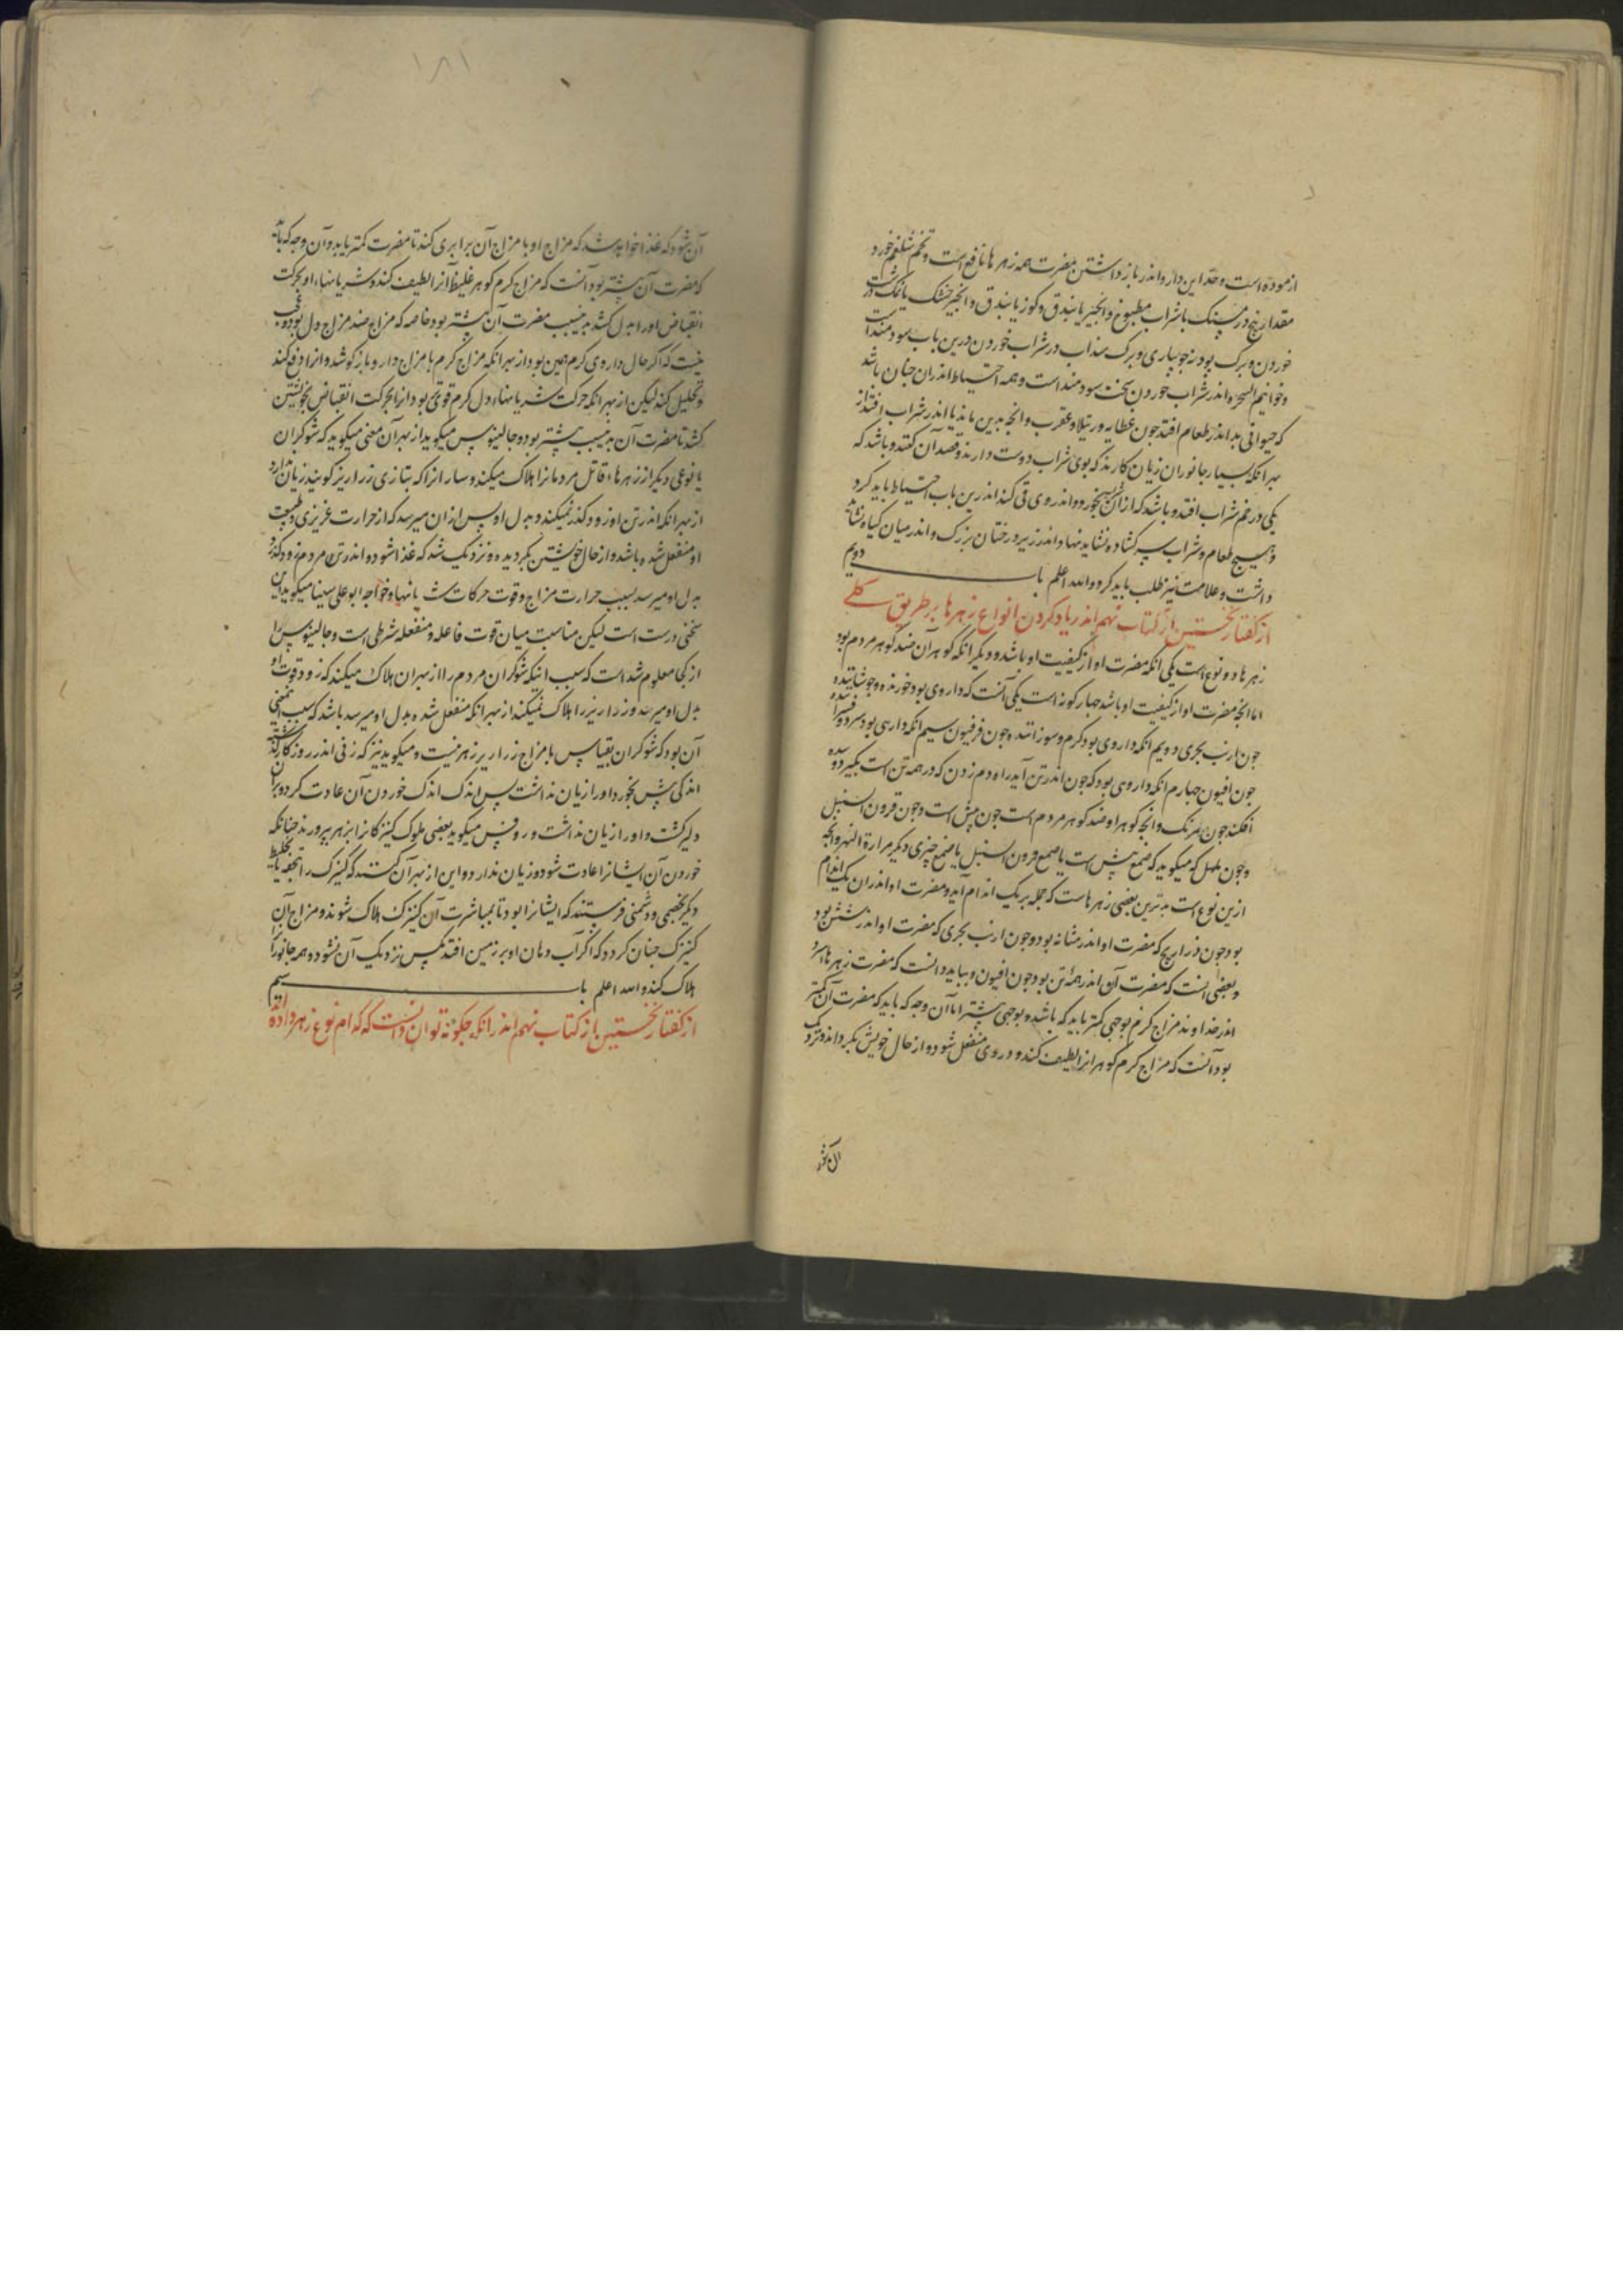 ازموده است وحدّ این دارو اندر باز داشتن مضرت همه زهرها نافع است وتخم شلغم خورد
مقدار پنج درمسنک با شراب مطبوخ وانجیر یا بندق وکوز یا بندق وانجیر خشک با نمک
خوردن وبرک پودنه جویباری وبرک سداب در شراب خوردن درین باب سودمند است
اندر شراب خوردن سخت سودمند است وهمه احتیاط اندران جنان باشد
که حیوانی بد اندر طعام افتد جون عظایه ورتیلا وعقرب وانجه بدین ماند یا اندر شراب افتد از
بهر انکه بسیار جانوران زیان کارند که بوی شراب دوست دارند وقصد آن کنند وباشد که
یکی در خم شراب افتد وباشد که ازان بخورد واندر وی قی کند اندرین باب احتیاط باید کرد
وهیچ طعام وشراب سر کشاده نشاید نهاد واندر زیر درختان بزرک واندر میان کیاه نشاید
داشت وعلامت نیز طلب باید کرد والله اعلم باب دویم
از کفتار نخستین از کتاب نهم اندر یاد کردن انواع زهرها بر طریق کلی
زهرها دو نوع است یکی انکه مضرت او از کیفیت او باشد ودیکر انکه کوهر آن ضد کوهر مردم بود
اما انجه مضرت او از کیفیت او باشد جهار کونه است یکی آنست که داروی بود خورنده
جون ارنب بحری دویم انکه داروی بود کرم وسوزاننده جون فرفیون سیم انکه داروی بود سرد
جون افیون جهارم انکه داروی بود که جون اندر تن آید راه دم زدن که در همه تن است بکیرد
افکند جون وانجه کوهر او ضد کوهر مردم است جون بیش است وجون قرون السنبل
وجون هلهل که میکوید که صمغ بیش است یا صمغ قرون السنبل یا صمغ چیزی دیکر مرارة النمر وانجه
ازین نوع است بدترین بعضی زهرهاست که جمله بر یک اندام آید ومضرت او اندران یک اندام
بود جون ذراریح که مضرت او اندر مثانه بود وجون ارنب بحری که مضرت او اندر شش بود
وبعضی انست که مضرت آن اندر همه تن بود جون افیون وبباید دانست که مضرت زهرها سرد
اندر خداوند مزاج کرم بوجهی کمتر باید که باشد وبوجهی بیشتر اما آن وجه که باید که مضرت آن کمتر
بود آنست که مزاج کرم کوهر انرا لطیف کند ودر وی منفعل شود واز حال خویش بکرداند ونزدیک
آن شود که
آن شود که غذا خواهد شد که مزاج او با مزاج آن برابری کند تا مضرت کمتر یابد وآن وجه که باید
که مضرت آن بیشتر بود آنست که مزاج کرم کوهر غلیظ آنرا لطیف کند وشریانها او بحرکت
انقباض اورا بدل کشد بدین سبب مضرت آن بیشتر بود خاصه که مزاج ضد مزاج دل بود
نیست که اکر حال داروی کرم همین بود از بهر انکه مزاج کرم با مزاج دارو باز کوشد وانرا دفع کند
وتحلیل کند لیکن از بهر انکه حرکت شریانها ودل کرم قوی بود انرا بحرکت انقباض بخویشتن
کشد تا مضرت آن بدین سبب بیشتر بود وجالینوس میکوید از بهر آن معنی میکوید که شوکران
یا نوعی دیکر از زهرها قاتل مردمانرا هلاک میکند وسار انرا که بتازی زرازیر کویند زیان ندارد
از بهر انکه اندر تن او زود کذر نمیکند وبدل او پس ازان میرسد که از حرارت غریزی وطبیعت
او منفعل شده باشد واز حال خویشتن بکردیده ونزدیک شد که غذا شود واندر تن مردم زود کذرد
بدل او میرسد بسبب حرارت مزاج وقوت حرکات شریانها وخواجه ابو علی سینا میکوید این
سخنی درست است لیکن مناسبت میان قوت فاعله ومنفعله شرطی است وجالینوس را
از کجا معلوم شد است که سبب انیکه شوکران مردم را از بهر ان هلاک میکند که زود قوت او
بدل او میرسد وزرازیر را هلاک نمیکند از بهر انکه منفعل شده بدل او میرسد باشد که سبب این معنی
آن بود که شوکران بقیاس با مزاج زرازیر زهر نیست ومیکوید نیز که زنی اندر روزکار کذشته
اندکی بیش بخورد اورا زیان نداشت پس اندک اندک خوردن آن عادت کرد وبران
دلیر کشت واورا زیان نداشت وروفس میکوید بعضی ملوک کنیزکانرا بزهر بپرورند جنانکه
خوردن آن ایشانرا عادت شود وزیان ندارد واین از بهر آن کنند که کنیزک را بتحفه
دیکر بخصمی ودشمنی فرستند که ایشانرا بود تا بمباشرت آن کنیزک هلاک شوند ومزاج آن
کنیزک جنان کردد که اکر آب دهان او بر زمین افتد مکس نزدیک آن نشود وهمه جانورانرا
هلاک کند والله اعلم باب سیم
از کفتار نخستین از کتاب نهم اندر انکه جکونه توان دانست که کدام نوع زهر داده اند